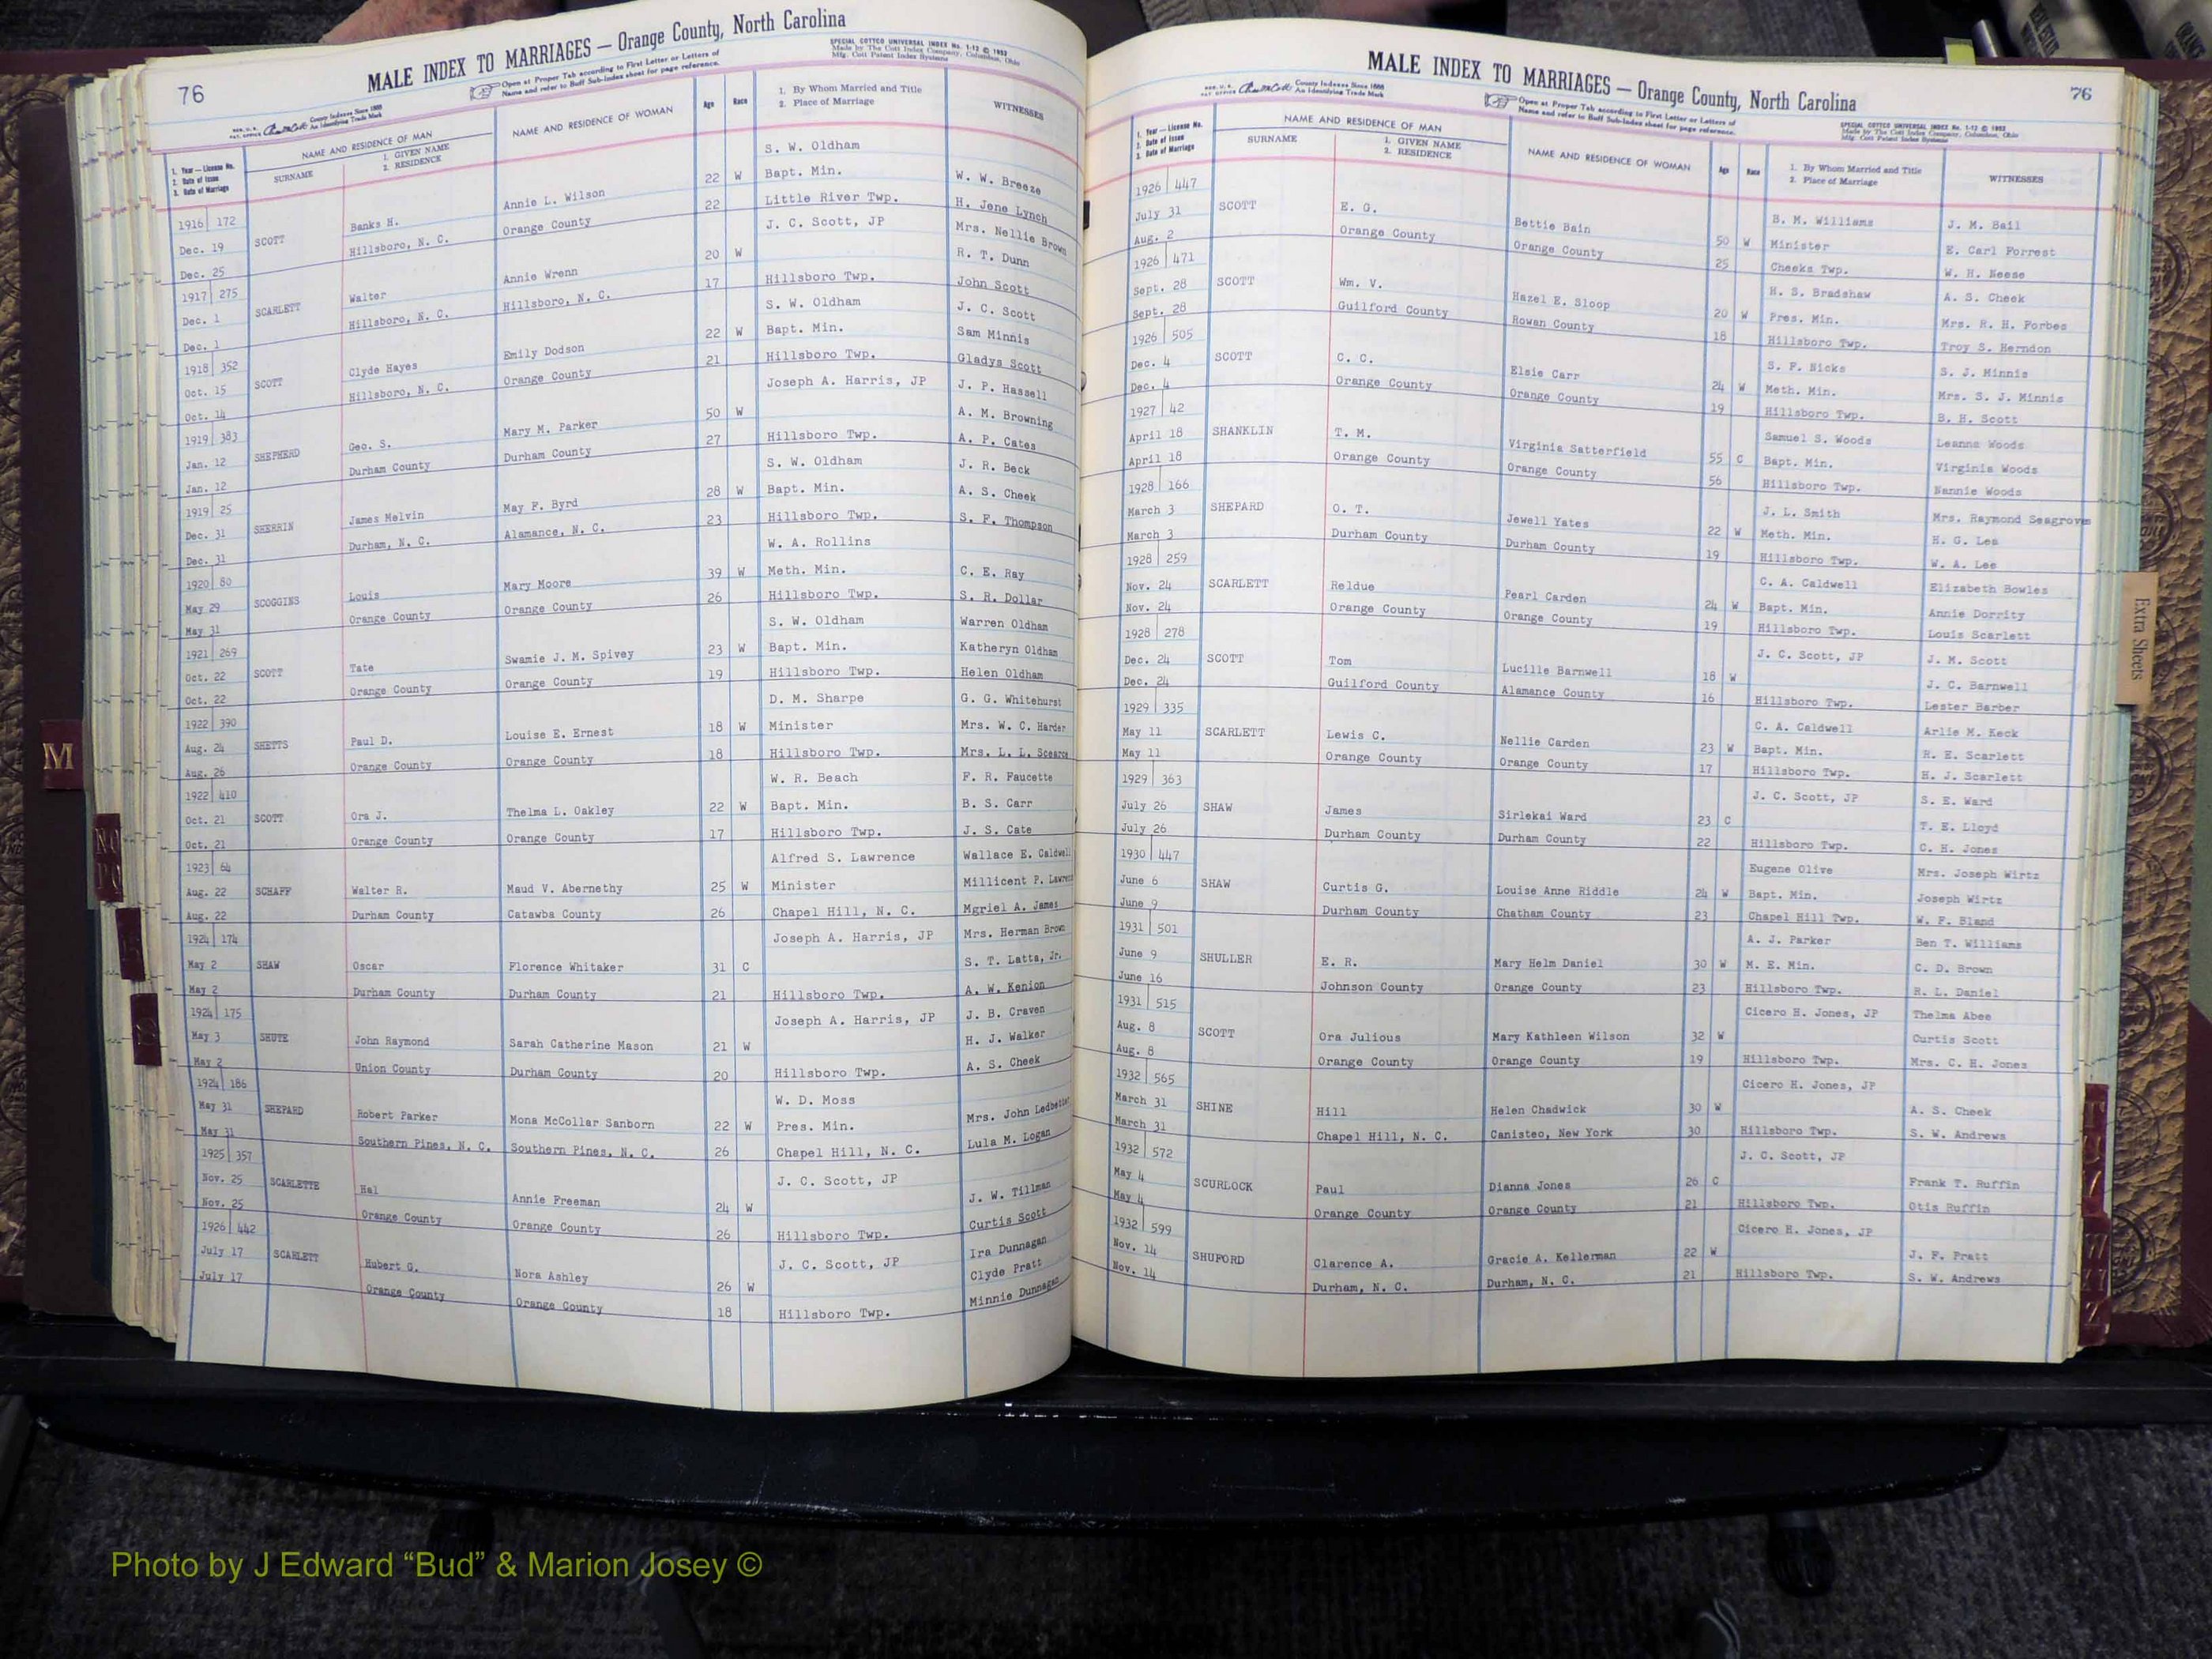 76
MALE INDEX TO MARRIAGES — Orange County, North Carolina
Open at Proper Tab according to First Letter or Letters of
Name and refer to Buff Sub-Index sheet for page reference.
SPECIAL COTTCO UNIVERSAL INDEX No. 1-12 © 1952
Made by The Cott Index Company, Columbus, Ohio
Mfg. Cott Patent Index Systems
County Indexes Since 1888
An Identifying Trade Mark
1. Year — License No.
2. Date of Issue
3. Date of Marriage
NAME AND RESIDENCE OF MAN
SURNAME
1. GIVEN NAME
2. RESIDENCE
NAME AND RESIDENCE OF WOMAN
Age
Race
1. By Whom Married and Title
2. Place of Marriage
WITNESSES
S. W. Oldham
1916 172 22 W Bapt. Min. W. W. Breeze
Dec. 19 SCOTT Banks H. Annie L. Wilson 22 Little River Twp. H. Jene Lynch
Dec. 25 Hillsboro, N. C. Orange County
J. C. Scott, JP Mrs. Nellie Brown
1917 275 20 W R. T. Dunn
Dec. 1 SCARLETT Walter Annie Wrenn 17 Hillsboro Twp. John Scott
Dec. 1 Hillsboro, N. C. Hillsboro, N. C.
S. W. Oldham J. C. Scott
1918 352 22 W Bapt. Min. Sam Minnis
Oct. 15 SCOTT Clyde Hayes Emily Dodson 21 Hillsboro Twp. Gladys Scott
Oct. 14 Hillsboro, N. C. Orange County
Joseph A. Harris, JP J. P. Hassell
1919 383 50 W A. M. Browning
Jan. 12 SHEPHERD Geo. S. Mary M. Parker 27 Hillsboro Twp. A. P. Cates
Jan. 12 Durham County Durham County
S. W. Oldham J. R. Beck
1919 25 28 W Bapt. Min. A. S. Cheek
Dec. 31 SHERRIN James Melvin May F. Byrd 23 Hillsboro Twp. S. F. Thompson
Dec. 31 Durham, N. C. Alamance, N. C.
W. A. Rollins
1920 80 39 W Meth. Min. C. E. Ray
May 29 SCOGGINS Louis Mary Moore 26 Hillsboro Twp. S. R. Dollar
May 31 Orange County Orange County
S. W. Oldham Warren Oldham
1921 269 23 W Bapt. Min. Katheryn Oldham
Oct. 22 SCOTT Tate Swamie J. M. Spivey 19 Hillsboro Twp. Helen Oldham
Oct. 22 Orange County Orange County
D. M. Sharpe G. G. Whitehurst
1922 390 18 W Minister Mrs. W. C. Harder
Aug. 24 SHETTS Paul D. Louise E. Ernest 18 Hillsboro Twp. Mrs. L. L. Scearce
Aug. 26 Orange County Orange County
W. R. Beach F. R. Faucette
1922 410 22 W Bapt. Min. B. S. Carr
Oct. 21 SCOTT Ora J. Thelma L. Oakley 17 Hillsboro Twp. J. S. Cate
Oct. 21 Orange County Orange County
Alfred S. Lawrence Wallace E. Caldwell
1923 64 25 W Minister Millicent P. Lawrence
Aug. 22 SCHAFF Walter R. Maud V. Abernethy 26 Chapel Hill, N. C. Mgriel A. James
Aug. 22 Durham County Catawba County
Joseph A. Harris, JP Mrs. Herman Brown
1924 174 31 C S. T. Latta, Jr.
May 2 SHAW Oscar Florence Whitaker 21 Hillsboro Twp. A. W. Kenion
May 2 Durham County Durham County
Joseph A. Harris, JP J. B. Craven
1924 175 21 W H. J. Walker
May 3 SHUTE John Raymond Sarah Catherine Mason 20 Hillsboro Twp. A. S. Cheek
May 2 Union County Durham County
W. D. Moss
1924 186 22 W Pres. Min. Mrs. John Ledbetter
May 31 SHEPARD Robert Parker Mona McCollar Sanborn 26 Chapel Hill, N. C. Lula M. Logan
May 31 Southern Pines, N. C. Southern Pines, N. C.
J. C. Scott, JP
1925 357 24 W J. W. Tillman
Nov. 25 SCARLETTE Hal Annie Freeman 26 Hillsboro Twp. Curtis Scott
Nov. 25 Orange County Orange County
J. C. Scott, JP Ira Dunnagan
1926 442 26 W Clyde Pratt
July 17 SCARLETT Hubert G. Nora Ashley 18 Hillsboro Twp. Minnie Dunnagan
July 17 Orange County Orange County
MALE INDEX TO MARRIAGES — Orange County, North Carolina
76
Open at Proper Tab according to First Letter or Letters of
Name and refer to Buff Sub-Index sheet for page reference.
SPECIAL COTTCO UNIVERSAL INDEX No. 1-12 © 1952
Made by The Cott Index Company, Columbus, Ohio
Mfg. Cott Patent Index Systems
County Indexes Since 1888
An Identifying Trade Mark
1. Year — License No.
2. Date of Issue
3. Date of Marriage
NAME AND RESIDENCE OF MAN
SURNAME
1. GIVEN NAME
2. RESIDENCE
NAME AND RESIDENCE OF WOMAN
Age
Race
1. By Whom Married and Title
2. Place of Marriage
WITNESSES
1926 447 B. M. Williams J. M. Bail
July 31 SCOTT E. G. Bettie Bain 50 W Minister E. Carl Forrest
Aug. 2 Orange County Orange County 25 Cheeks Twp. W. H. Neese
1926 471 H. S. Bradshaw A. S. Cheek
Sept. 28 SCOTT Wm. V. Hazel E. Sloop 20 W Pres. Min. Mrs. R. H. Forbes
Sept. 28 Guilford County Rowan County 18 Hillsboro Twp. Troy S. Herndon
1926 505 S. F. Nicks S. J. Minnis
Dec. 4 SCOTT C. C. Elsie Carr 24 W Meth. Min. Mrs. S. J. Minnis
Dec. 4 Orange County Orange County 19 Hillsboro Twp. B. H. Scott
1927 42 Samuel S. Woods Leanna Woods
April 18 SHANKLIN T. M. Virginia Satterfield 55 C Bapt. Min. Virginia Woods
April 18 Orange County Orange County 56 Hillsboro Twp. Nannie Woods
1928 166 J. L. Smith Mrs. Raymond Seagroves
March 3 SHEPARD O. T. Jewell Yates 22 W Meth. Min. H. G. Lea
March 3 Durham County Durham County 19 Hillsboro Twp. W. A. Lee
1928 259 C. A. Caldwell Elizabeth Bowles
Nov. 24 SCARLETT Reldue Pearl Carden 24 W Bapt. Min. Annie Dorrity
Nov. 24 Orange County Orange County 19 Hillsboro Twp. Louis Scarlett
1928 278 J. C. Scott, JP J. M. Scott
Dec. 24 SCOTT Tom Lucille Barnwell 18 W J. C. Barnwell
Dec. 24 Guilford County Alamance County 16 Hillsboro Twp. Lester Barber
1929 335 C. A. Caldwell Arlie M. Keck
May 11 SCARLETT Lewis C. Nellie Carden 23 W Bapt. Min. R. E. Scarlett
May 11 Orange County Orange County 17 Hillsboro Twp. H. J. Scarlett
1929 363 J. C. Scott, JP S. E. Ward
July 26 SHAW James Sirlekai Ward 23 C T. E. Lloyd
July 26 Durham County Durham County 22 Hillsboro Twp. C. H. Jones
1930 447 Eugene Olive Mrs. Joseph Wirtz
June 6 SHAW Curtis G. Louise Anne Riddle 24 W Bapt. Min. Joseph Wirtz
June 9 Durham County Chatham County 23 Chapel Hill Twp. W. F. Bland
1931 501 A. J. Parker Ben T. Williams
June 9 SHULLER E. R. Mary Helm Daniel 30 W M. E. Min. C. D. Brown
June 16 Johnson County Orange County 23 Hillsboro Twp. R. L. Daniel
1931 515 Cicero H. Jones, JP Thelma Abee
Aug. 8 SCOTT Ora Julious Mary Kathleen Wilson 32 W Curtis Scott
Aug. 8 Orange County Orange County 19 Hillsboro Twp. Mrs. C. H. Jones
1932 565 Cicero H. Jones, JP
March 31 SHINE Hill Helen Chadwick 30 W A. S. Cheek
March 31 Chapel Hill, N. C. Canisteo, New York 30 Hillsboro Twp. S. W. Andrews
1932 572 J. C. Scott, JP
May 4 SCURLOCK Paul Dianna Jones 26 C Frank T. Ruffin
May 4 Orange County Orange County 21 Hillsboro Twp. Otis Ruffin
1932 599 Cicero H. Jones, JP
Nov. 14 SHUFORD Clarence A. Gracie A. Kellerman 22 W J. F. Pratt
Nov. 14 Durham, N. C. Durham, N. C. 21 Hillsboro Twp. S. W. Andrews
Extra Sheets
M
Photo by J Edward “Bud” & Marion Josey ©